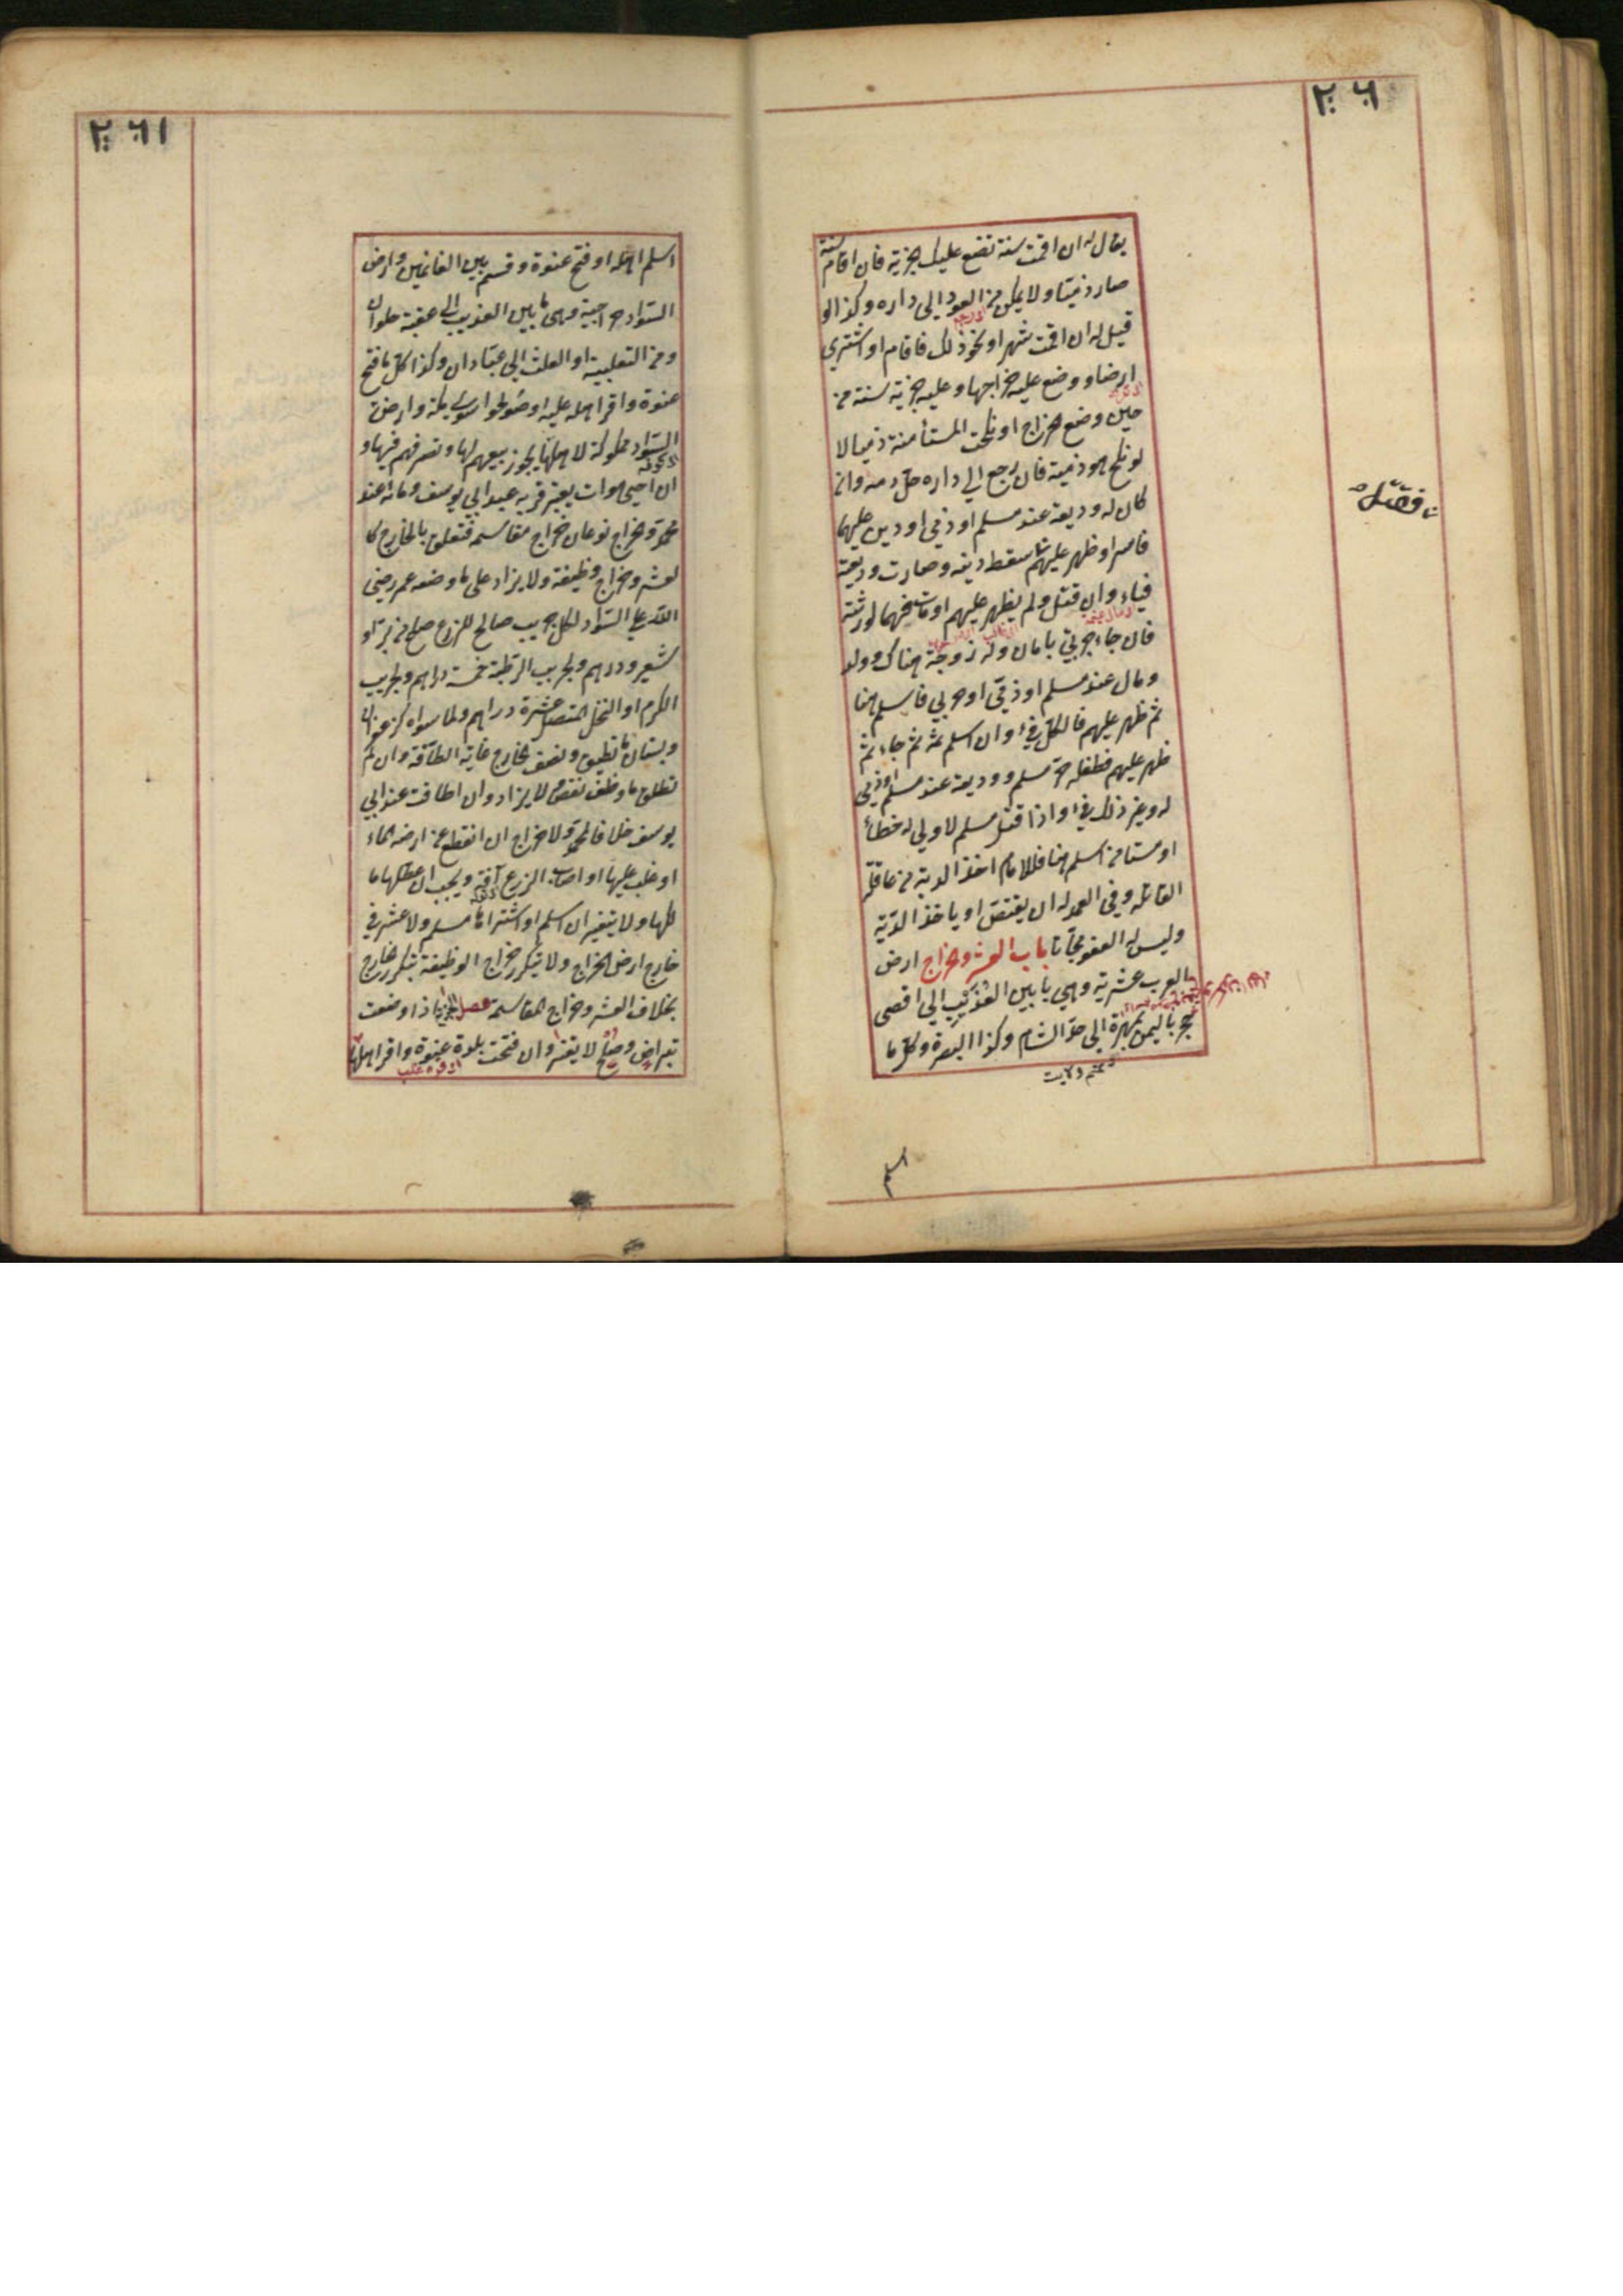 ٢٦٠
يقال له ان اقمت سنة نضع عليك الجزية فان اقام سنة
صار ذميا ولا يمكن من العود الى داره وكذا لو
قيل له ان اقمت شهرا ونحو ذلك فاقام او اشترى
ارضا ووضع عليه خراجها وعليه جزية سنة من
حين وضع الخراج او نكحت المستأمنة ذميا لا
لو نكح هو ذمية فان رجع الى داره حل دمه وان
كان له وديعة عند مسلم او ذمي او دين عليهما
فاسر او ظهر عليهم سقط دينه وصارت وديعته
فيأ وان قتل ولم يظهر عليهم او مات فهما لورثته
فان جاء حربي بامان وله زوجة هناك وولد
ومال عند مسلم او ذمي او حربي فاسلم هنا
ثم ظهر عليهم فالكل فيء وان اسلم ثمه ثم جاء ثم
ظهر عليهم فطفله حر مسلم ووديعة عند مسلم او ذمي
له وغير ذلك فيء واذا قتل مسلم لا ولي له خطأ
او مستأمن اسلم هنا فللامام اخذ الدية من عاقلة
القاتل وفي العمد له ان يقتص او ياخذ الدية
وليس له العفو مجانا باب العشر والخراج ارض
العرب عشرية وهي ما بين العذيب الى اقصى
حجر باليمن بمهرة الى حد الشام وكذا البصرة وكل ما
اسلم
فصل
٢٦١
اسلم اهله او فتح عنوة وقسم بين الغانمين وارض
السواد خراجية وهي ما بين العذيب الى عقبة حلوان
ومن الثعلبية او العلث الى عبادان وكذا كل ما فتح
عنوة واقر اهله عليه او صولحوا سوى مكة وارض
السواد مملوكة لاهلها يجوز بيعهم لها وتصرفهم فيها و
ان احيى موات يعتبر قربه عند ابي يوسف وماؤه عند
محمد والخراج نوعان خراج مقاسمة فتعلق بالخارج كا
لعشر وخراج وظيفة ولا يزاد على ما وضعه عمر رضي
الله على السواد لكل جريب صالح للزرع صاع من بر او
شعير ودرهم ولجريب الرطبة خمسة دراهم ولجريب
الكرم او النخل المتصل عشرة دراهم ولما سواه كزعفران
وبستان ما تطيق ونصف الخارج غاية الطاقة وان لم
تطق ما وظف نقص ولا يزاد وان اطاقت عند ابي
يوسف خلافا لمحمد ولا خراج ان انقطع عن ارضه الماء
او غلب عليها او اصاب الزرع آفة ويجب ان عطلها ما
لكها ولا يتغير ان اسلم او اشتراها مسلم ولا عشر في
خارج ارض الخراج ولا يتكرر خراج الوظيفة بتكرر الخارج
بخلاف العشر وخراج المقاسمة فصل الجزية اذا وضعت
بتراض وصلح لا يتغير وان فتحت بلدة عنوة واقر اهلها